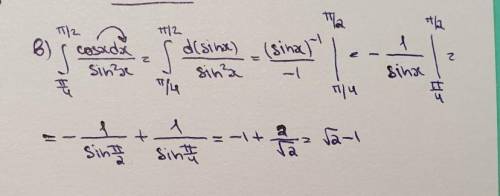 в) ∫_{π/4}^{π/2} cosxdx/sin²x = ∫_{π/4}^{π/2} d(sinx)/sin²x = (sinx)⁻¹/-1 |_{π/4}^{π/2} = - 1/sinx |_{π/4}^{π/2} =
= - 1/sin π/2 + 1/sin π/4 = -1 + 2/√2 = √2 - 1